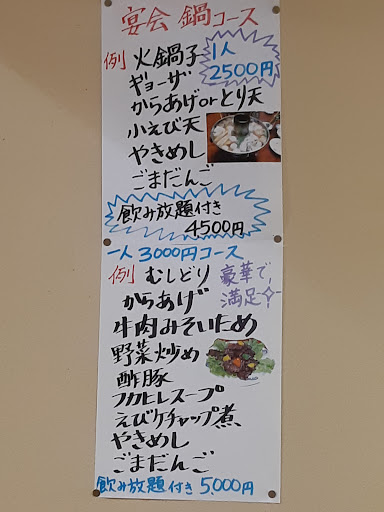 宴会 鍋コース
例 火鍋子
1人
2500円
ギョーザ
からあげorとり天
小えび天
やきめし
ごまだんご
飲み放題付き
4500円
一人 3000円コース
例 むしどり
豪華で
満足
からあげ
牛肉みそいため
野菜炒め
酢豚
フカヒレスープ
えびケチャップ煮
やきめし
ごまだんご
飲み放題付き 5,000円